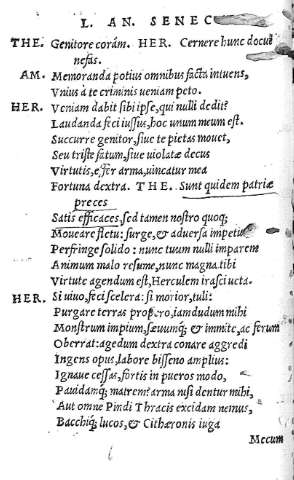 L. AN. SENEC
THE. Genitore corám. HER. Cernere hunc docui
nefas.
AM. Memoranda potius omnibus facta intuens,
Vnius à te criminis veniam peto.
HER. Veniam dabit sibi ipse, qui nulli dedit?
Laudanda feci iussus, hoc unum meum est.
Succurre genitor, siue te pietas mouet,
Seu triste fatum, siue uiolatæ decus
Virtutis, effer arma, uincatur mea
Fortuna dextra. THE. Sunt quidem patriæ
preces
Satis efficaces, sed tamen nostro quoq;
Moueare fletu: surge, & aduersa impetu
Perfringe solido: nunc tuum nulli imparem
Animum malo resume, nunc magna tibi
Virtute agendum est, Herculem irasci ueta.
HER. Si uiuo, feci scelera: si morior, tuli:
Purgare terras propero, iamdudum mihi
Monstrum impium, sæuumq; & immite, ac ferum
Oberrat: agedum dextra conare aggredi
Ingens opus, labore bisseno amplius:
Ignaue cessas, fortis in pueros modo,
Pauidamq; matrem? arma nisi dentur mihi,
Aut omne Pindi Thracis excidam nemus,
Bacchiq; lucos, & Cithæronis iuga
Mecum